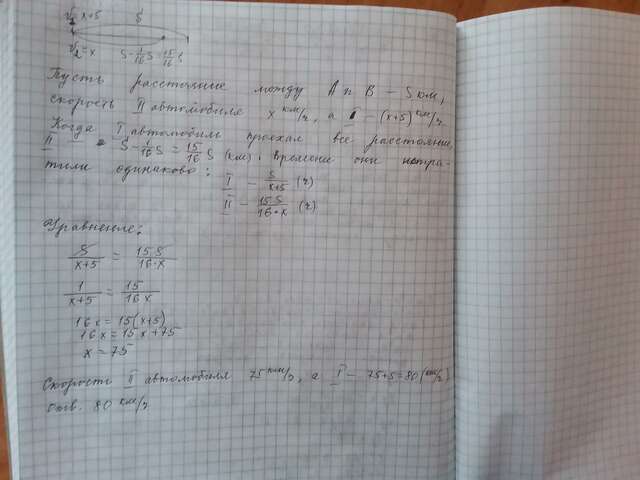 V₁ x+5 S
V₂=x S-1/16S=15/16S
Пусть расстояние между А и В - S км,
скорость II автомобиля x км/ч, а I - (x+5) км/ч
Когда I автомобиль проехал все расстояние,
II - S-1/16S=15/16S (км). Времени они истра-
тили одинаково: I - S/x+5 (ч)
II - 15S/16·x (ч)
Уравнение:
S/x+5 = 15S/16·x
1/x+5 = 15/16x
16x=15(x+5)
16x=15x+75
x=75
Скорость II автомобиля 75 км/ч, а I - 75+5=80 (км/ч)
Отв. 80 км/ч